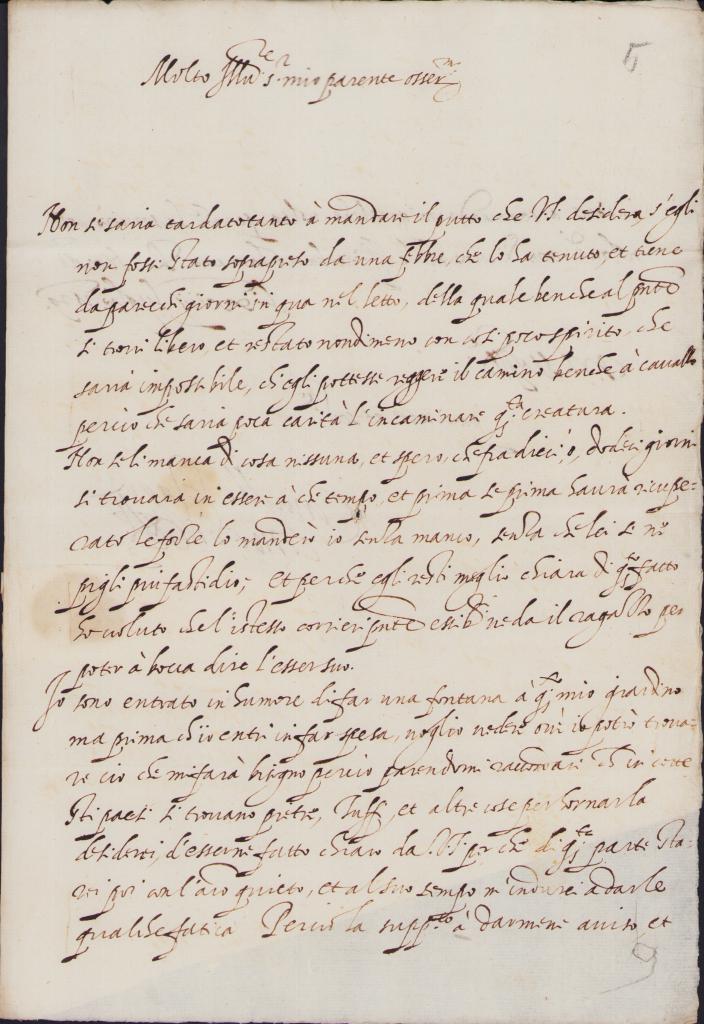 5
Molto Ill.re s.r mio parente osser.mo
Non si saria tardato tanto à mandare il putto che VS desidera, s'egli
non fosse stato soprapreso da una febre, che lo ha tenuto, et tiene
da parechi giorni in qua nel letto, della quale benche al pnte
si trovi libero, et restato nondimeno con cosi poco spirito, che
saria impossibile, ch'egli potesse reggere il camino benche à cavallo
percio che saria poca carità l'incaminare q.ta creatura.
Non seli manca di cosa nissuna, et spero, che fra dieci, ò, dodeci giorni
si trovarà in essere à che tempo, et prima se prima haurà ricupe-
rato le forze lo manderò io senza manco, senza che lei se n
pigli piu fastidio; et perche egli resti meglio chiara di q.to fatto
ho voluto che l'istesso corrier pnte essib.re veda il ragazzo per
poter à bocca dire l'esser suo.
Io sono entrato in humore di far una fontana à q.to mio giardino
ma prima ch'io entri in far spesa, voglio vedere ov'è io potrò trova-
re cio che mi farà bisogno percio parendomi raccordare ch in cote
sti paesi si trovano pietre, Tuffi, et altre cose per hornarla
desiderei, d'esserne fatto chiaro da VS perche di q.ta parte sta-
rei poi con l'a.o quieto, et al suo tempo m indurei a darle
qualche fatica Percio la supp.co à darmene aviso et